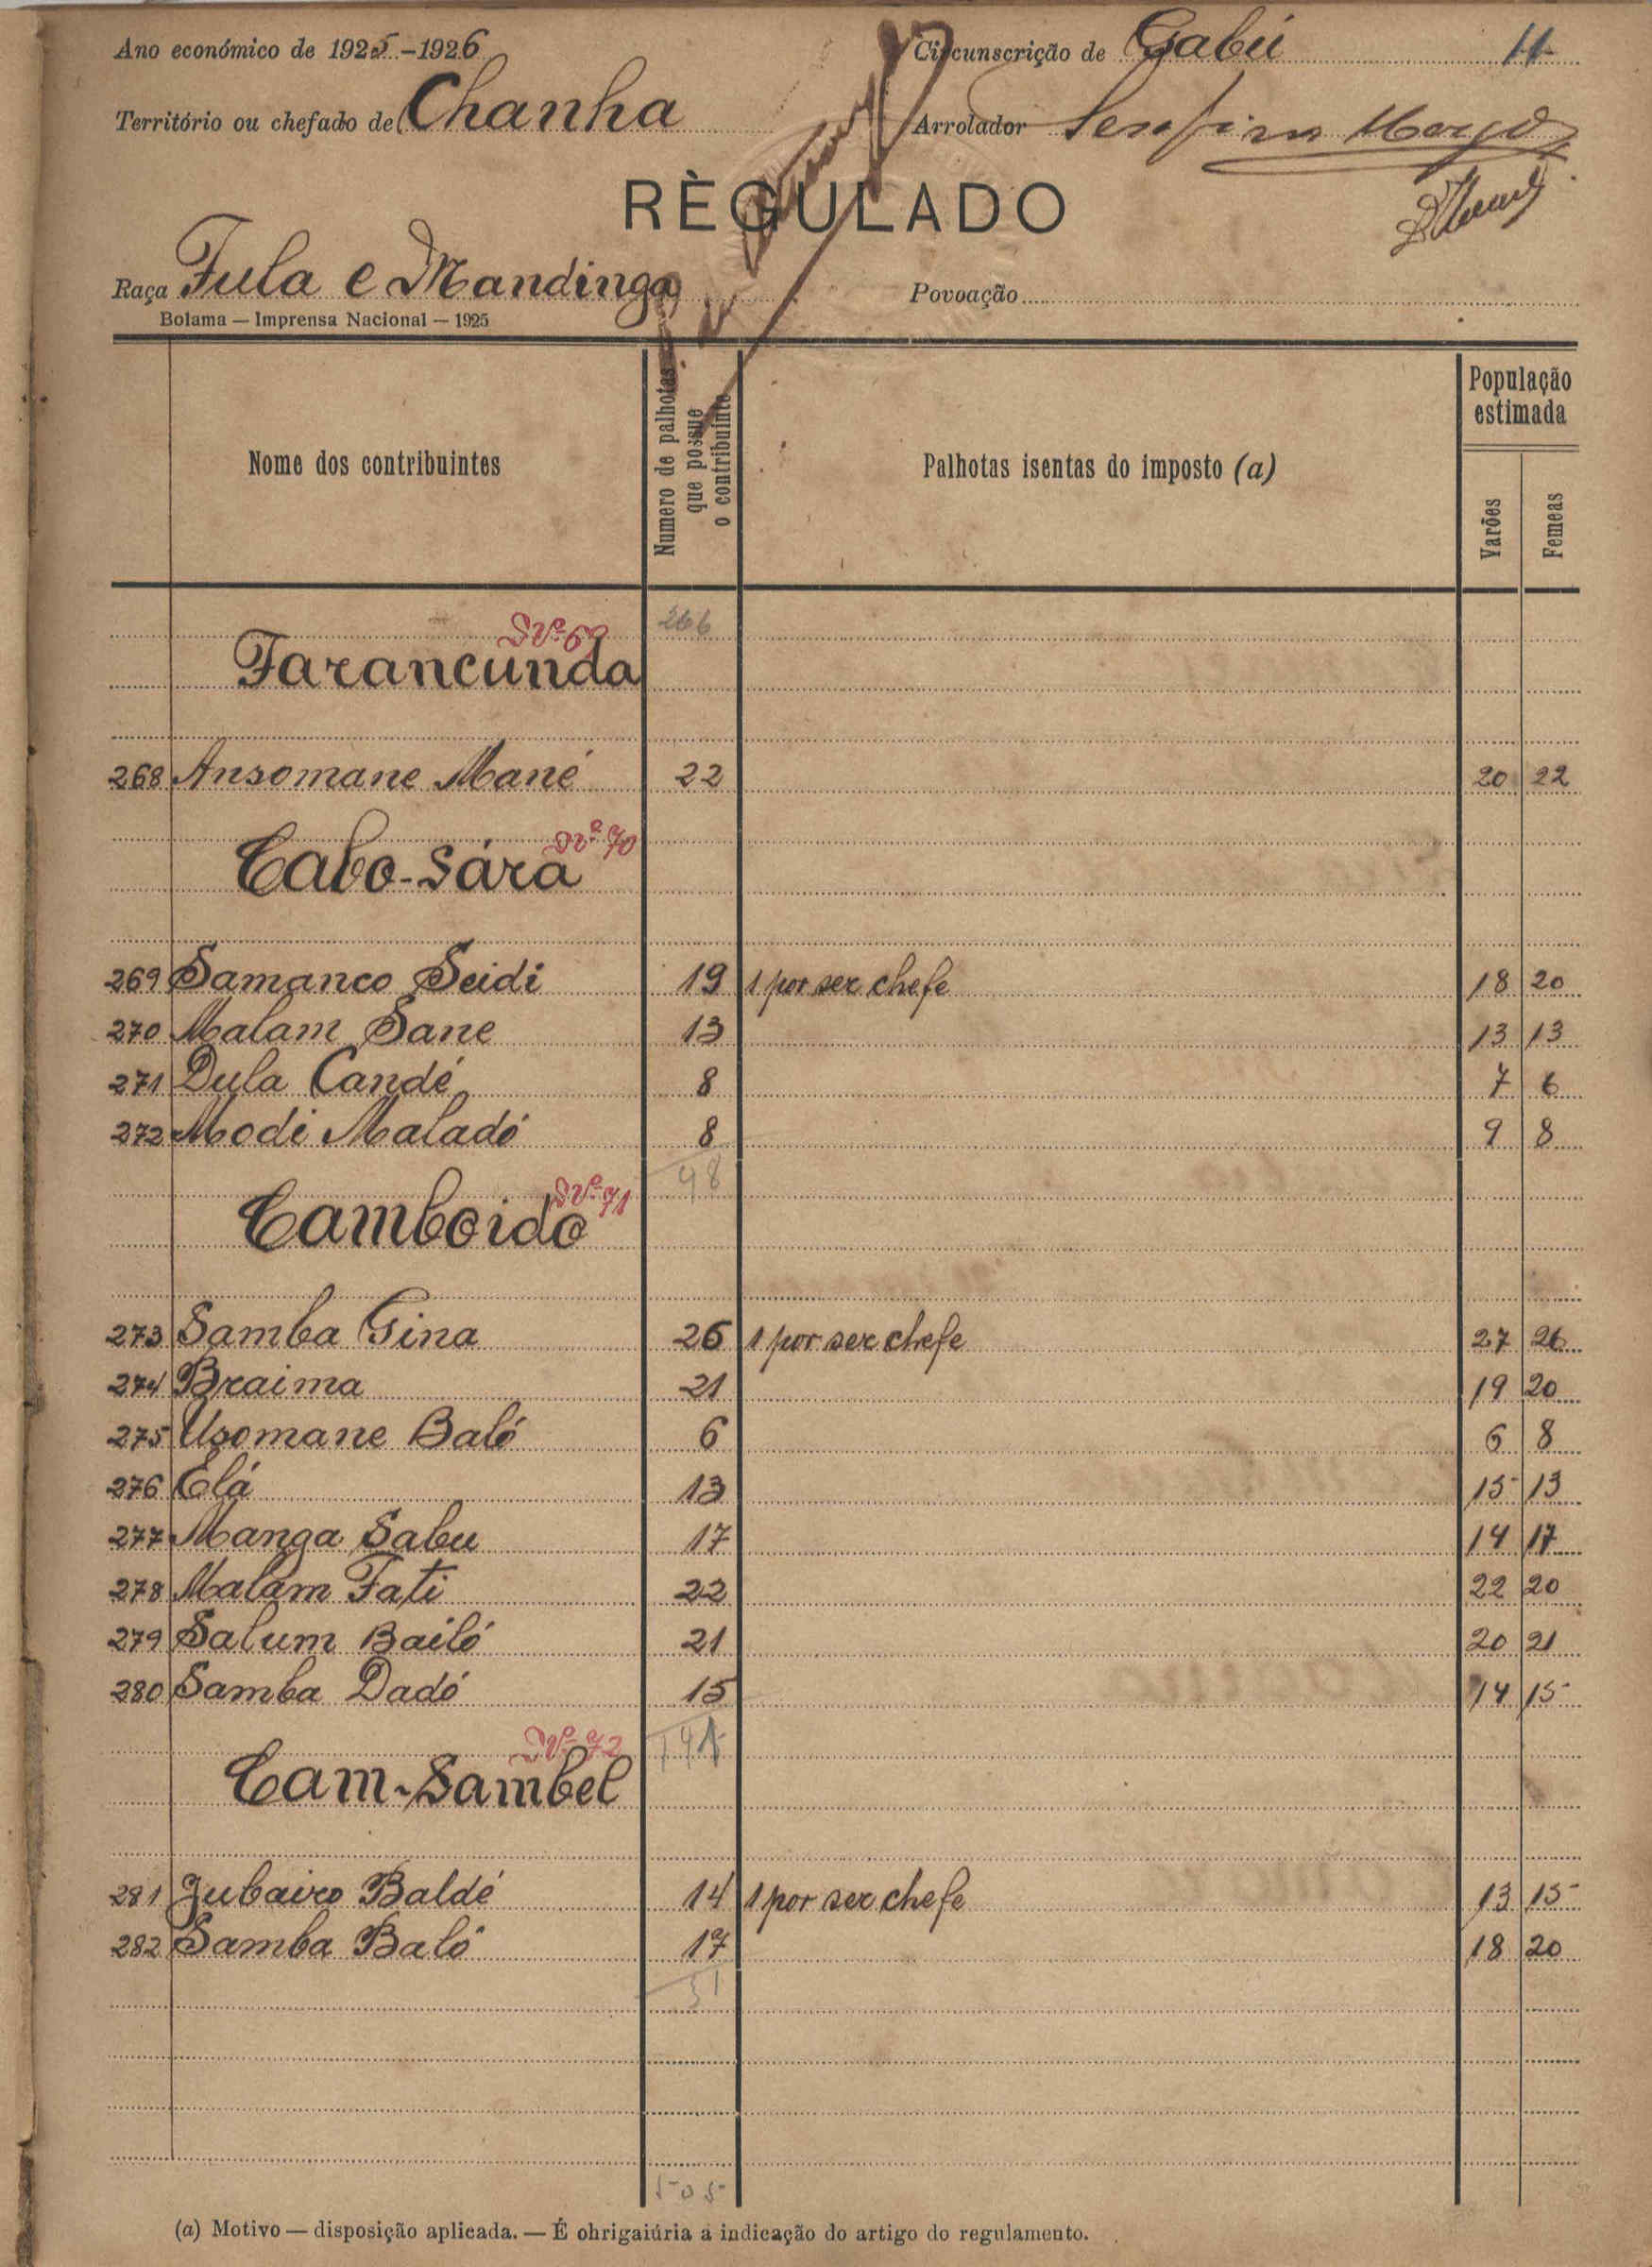 Ano económico de 1925-1926 Circunscrição de Gabú 11
Território ou chefado de Chanha Arrolador
RÈGULADO
Raça Fula e Mandinga Povoação
Bolama — Imprensa Nacional — 1925
Nome dos contribuintes
Numero de palhotas que possue o contribuinte
Palhotas isentas do imposto (a)
População estimada
Varões
Femeas
266
Nº 69
Farancunda
268 Ansomane Mané 22 20 22
Nº 70
Cabo-Sára
269 Samanco Seidi 19 1 por ser chefe 18 20
270 Malam Sane 13 13 13
271 Dula Candé 8 7 6
272 Modi Maladó 8 9 8
48
Nº 71
Camboido
273 Samba Gina 26 1 por ser chefe 27 26
274 Braima 21 19 20
275 Usomane Baló 6 6 8
276 Elá 13 15 13
277 Manga Sabu 17 14 17
278 Malam Fati 22 22 20
279 Salum Bailó 21 20 21
280 Samba Dadó 15 14 15
141
Nº 72
Cam-Sambel
281 Jubairo Baldé 14 1 por ser chefe 13 15
282 Samba Baló 17 18 20
31
505
(a) Motivo — disposição aplicada. — É ohrigaiúria a indicação do artigo do regulamento.